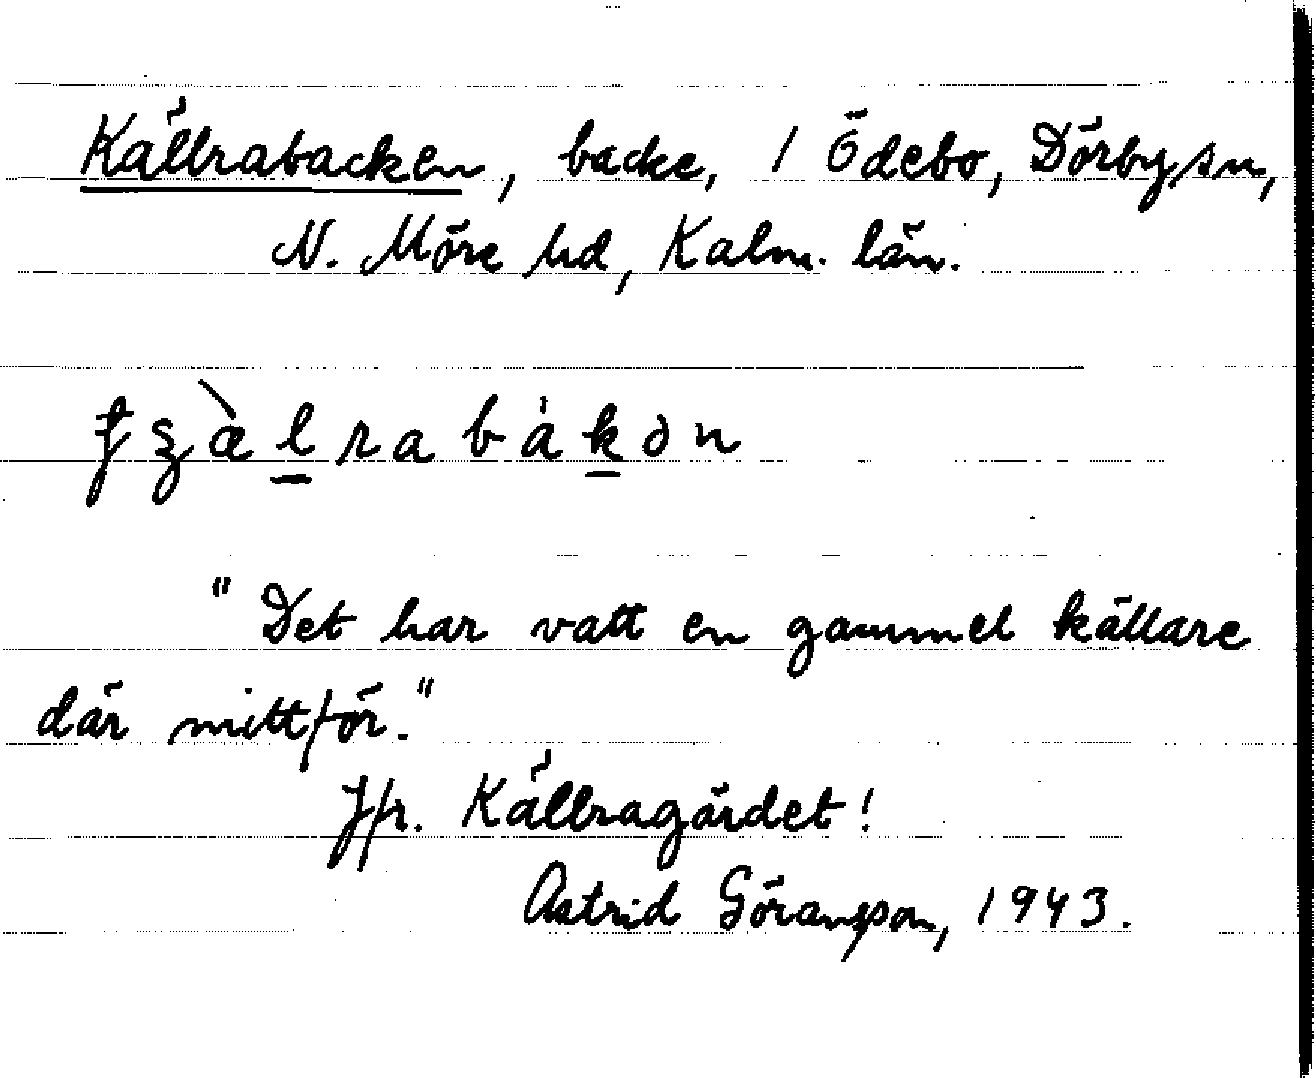 Källrabacken, backe, 1 Ödebo, Dörby sn,
N. Möre hd, Kalm. län.
ɟȥæ̀l̲rabàk̲ən
"Det har vatt en gammel källare
där mittför."
Jfr. Källragärdet!
Astrid Göransson, 1943.